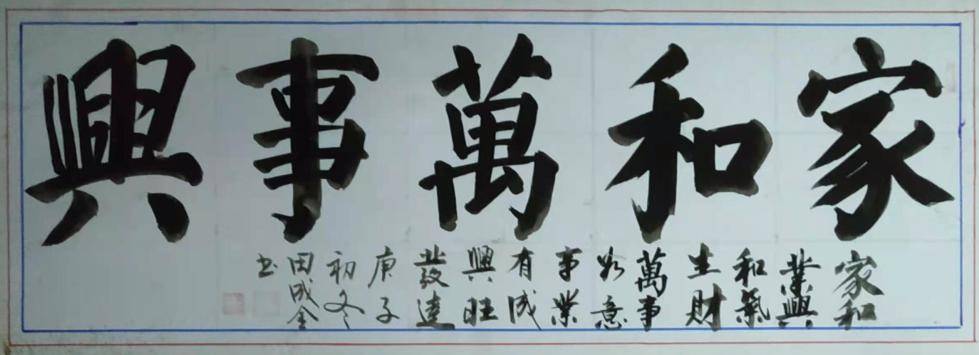 家和萬事興
家和
業興
和氣
生財
萬事
如意
事業
有成
興旺
發達
庚子
初冬
田成全
书